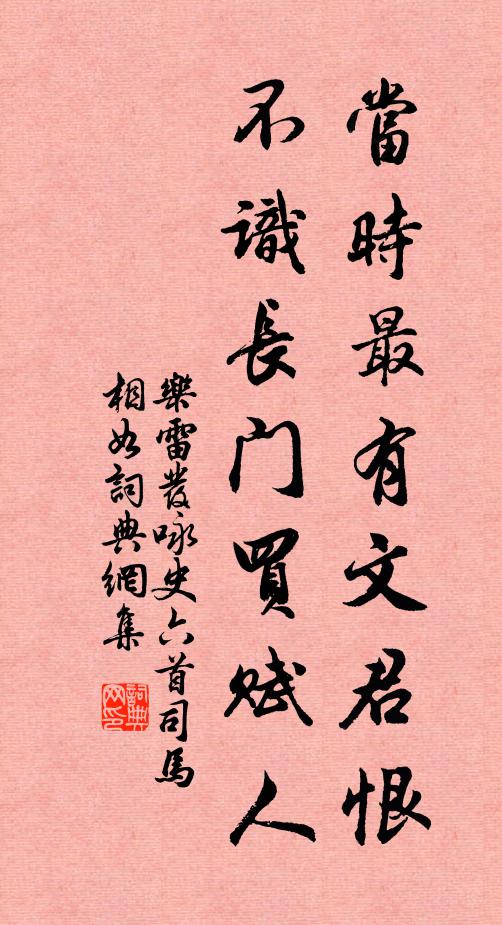 當時最有文君恨
不識長門買賦人
樂雷發咏史六首司馬
相如詞典網集
詞典网印